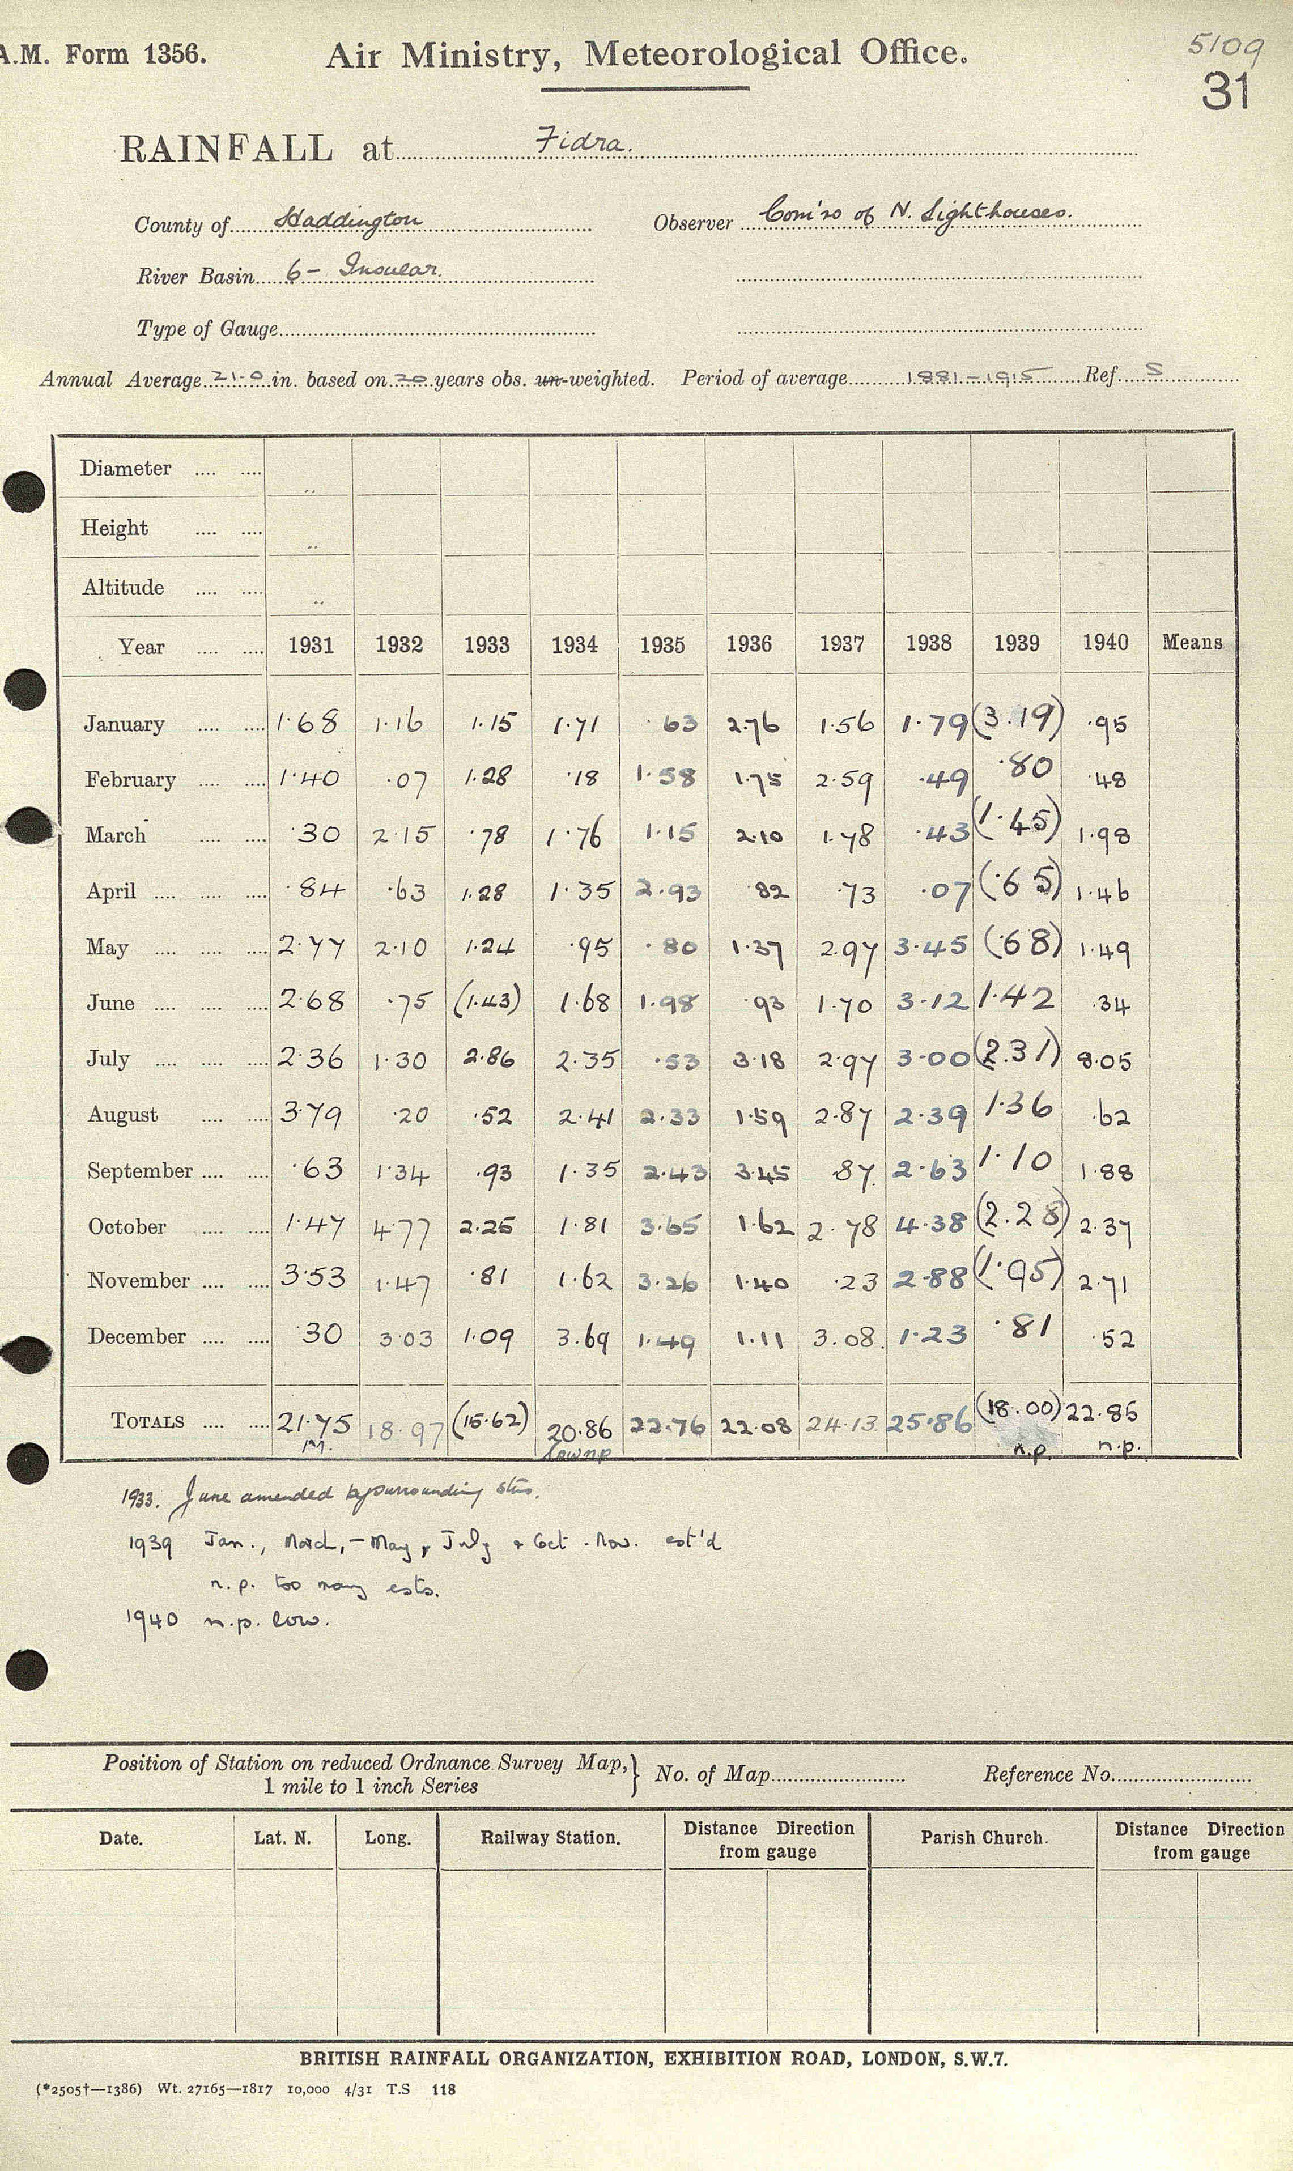 A.M. Form 1356. Air Ministry, Meteorological Office. 5109
31
RAINFALL at Fidra.
County of Haddington Observer Com'rs of N. Lighthouses.
River Basin 6 - Insular.
Type of Gauge
Annual Average 21·0 in. based on 20 years obs. un-weighted. Period of average 1881-1915 Ref. S
Diameter
Height
Altitude
Year 1931 1932 1933 1934 1935 1936 1937 1938 1939 1940 Means
January 1·68 1·16 1·15 1·71 ·63 2·76 1·56 1·79 (3·19) ·95
February 1·40 ·07 1·28 ·18 1·58 1·75 2·59 ·49 ·80 ·48
March ·30 2·15 ·78 1·76 1·15 2·10 1·78 ·43 (1·45) 1·98
April ·84 ·63 1·28 1·35 2·93 ·82 ·73 ·07 (·65) 1·46
May 2·77 2·10 1·24 ·95 ·80 1·37 2·97 3·45 (·68) 1·49
June 2·68 ·75 (1·43) 1·68 1·98 ·93 1·70 3·12 1·42 ·34
July 2·36 1·30 2·86 2·35 ·53 3·18 2·97 3·00 (2·31) 8·05
August 3·79 ·20 ·52 2·41 2·33 1·59 2·87 2·39 1·36 ·62
September ·63 1·34 ·93 1·35 2·43 3·45 ·87 2·63 1·10 1·88
October 1·47 4·77 2·25 1·81 3·65 1·62 2·78 4·38 (2·28) 2·37
November 3·53 1·47 ·81 1·62 3·26 1·40 ·23 2·88 (1·95) 2·71
December ·30 3·03 1·09 3·69 1·49 1·11 3·08 1·23 ·81 ·52
TOTALS 21·75 18·97 (15·62) 20·86 22·76 22·08 24·13 25·86 (18·00) 22·85
M. low n.p. n.p. n.p.
1933. June amended by surrounding stns.
1939 Jan., March, - May, July + Oct - Nov. est'd
n.p. too many ests.
1940 n.p. low.
Position of Station on reduced Ordnance Survey Map,} No. of Map Reference No.
1 mile to 1 inch Series
Date. Lat. N. Long. Railway Station. Distance Direction from gauge Parish Church. Distance Direction from gauge
BRITISH RAINFALL ORGANIZATION, EXHIBITION ROAD, LONDON, S.W.7.
(*2505†—1386) Wt. 27165—1817 10,000 4/31 T.S 118